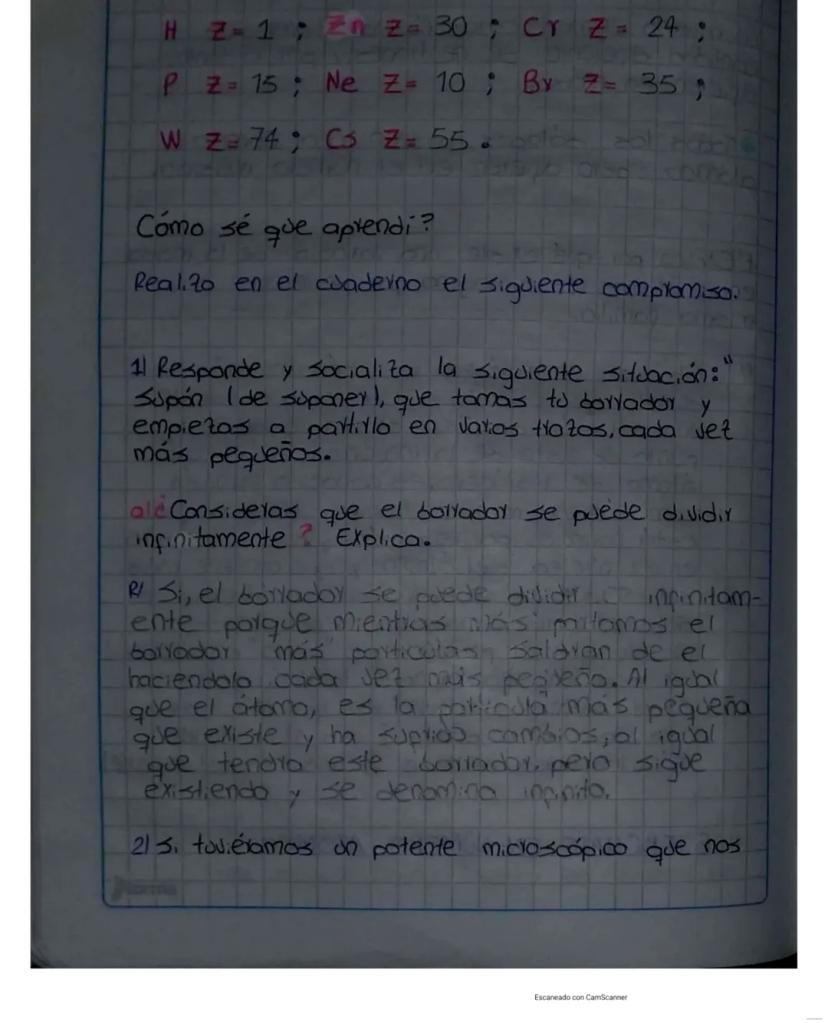 H Z= 1 ; Zn Z= 30 ; Cr Z= 24 ;
P Z= 15 ; Ne Z= 10 ; Br Z= 35 ;
W Z= 74 ; Cs Z= 55 .
Cómo sé que aprendí?
Realizo en el cuaderno el siguiente compromiso.
1) Responde y socializa la siguiente situación: "
Supón (de suponer), que tomas tu borrador y
empiezas a partirlo en varios trozos, cada vez
más pequeños.
a) ¿Consideras que el borrador se puede dividir
infinitamente? Explica.
R/ Si, el borrador se puede dividir infinitam-
ente porque mientras más partamos el
borrador más particulas saldran de el
haciendolo cada vez más pequeño. Al igual
que el átomo, es la particula más pequeña
que existe y ha sufrido cambios, al igual
que tendra este borrador, pero sigue
existiendo y se denomina infinito.
2) Si tuviéramos un potente microscópico que nos
norma
Escaneado con CamScanner